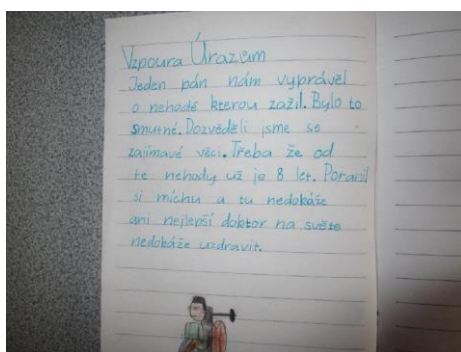 Vzpoura Úrazům
Jeden pán nám vyprávěl
o nehodě kterou zažil. Bylo to
smutné. Dozvěděli jsme se
zajímavé věci. Třeba že od
te nehody už je 8 let. Poranil
si míchu a tu nedokáže
ani nejlepší doktor na světe
nedokáže uzdravit.